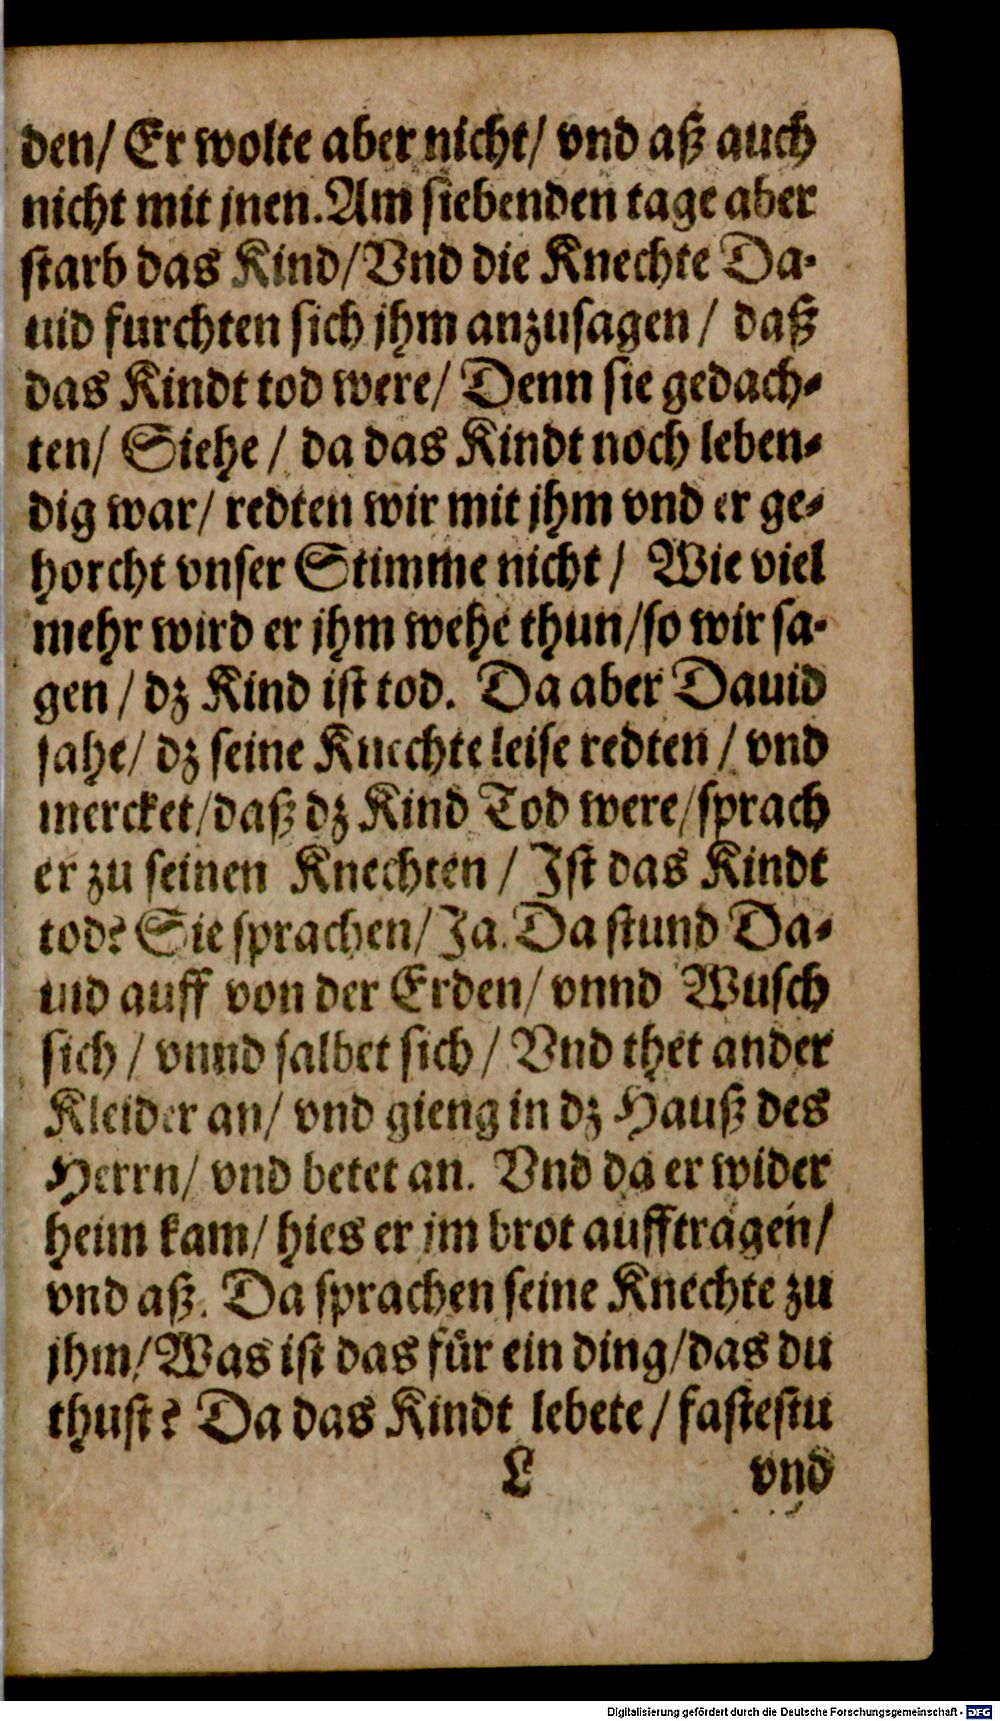 den/ Er wolte aber nicht/ vnd aß auch
nicht mit jnen. Am siebenden tage aber
starb das Kind/ Vnd die Knechte Da-
uid furchten sich jhm anzusagen / daß
das Kindt tod were/ Denn sie gedach-
ten/ Siehe / da das Kindt noch leben-
dig war/ redten wir mit jhm vnd er ge-
horcht vnser Stimme nicht / Wie viel
mehr wird er jhm wehe thun/ so wir sa-
gen / dz Kind ist tod. Da aber Dauid
sahe/ dz seine Knechte leise redten / vnd
mercket/ daß dz Kind Tod were/ sprach
er zu seinen Knechten / Ist das Kindt
tod? Sie sprachen/ Ja. Da stund Da-
uid auff von der Erden/ vnnd Wusch
sich / vnnd salbet sich / Vnd thet ander
Kleider an/ vnd gieng in dz Hauß des
Herrn/ vnd betet an. Vnd da er wider
heim kam/ hies er jm brot aufftragen/
vnd aß. Da sprachen seine Knechte zu
jhm/ Was ist das für ein ding/ das du
thust? Da das Kindt lebete / fastestu
L vnd
Digitalisierung gefördert durch die Deutsche Forschungsgemeinschaft - DFG